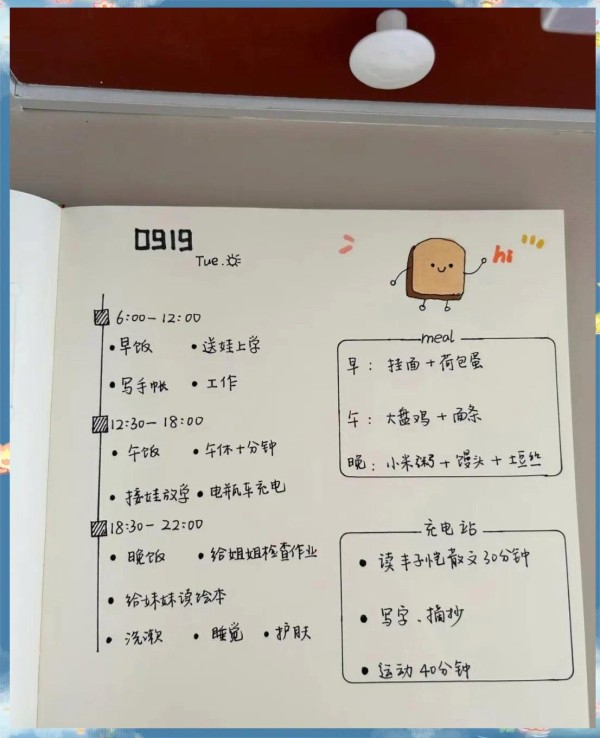 0919
Tue.
hi
6:00-12:00
•早饭 •送娃上学
•写手帐 •工作
12:30-18:00
•午饭 •午休十分钟
•接娃放学 •电瓶车充电
18:30-22:00
•晚饭 •给姐姐检查作业
•给妹妹读绘本
•洗漱 •睡觉 •护肤
meal
早: 挂面+荷包蛋
午: 大盘鸡+面条
晚: 小米粥+馒头+土豆丝
充电站
•读丰子恺散文30分钟
•写字、摘抄
•运动40分钟